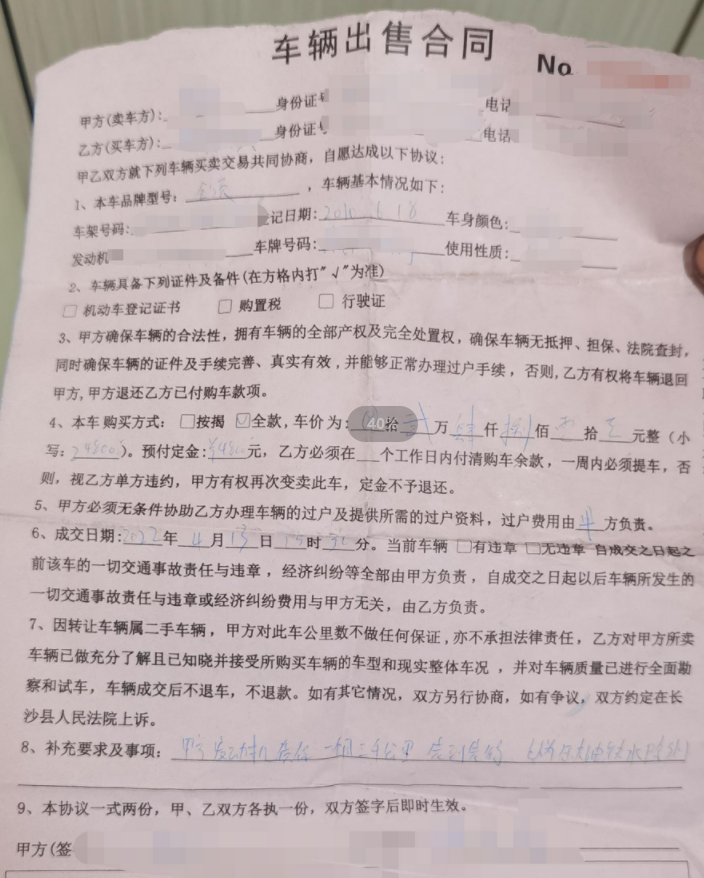 车辆出售合同 No
甲方(卖车方): 身份证号 电话
乙方(买车方): 身份证号 电话
甲乙双方就下列车辆买卖交易共同协商，自愿达成以下协议：
1、本车品牌型号： ，车辆基本情况如下：
车架号码: 登记日期: 车身颜色:
发动机 车牌号码: 使用性质:
2、车辆具备下列证件及备件(在方格内打"√"为准)
□ 机动车登记证书 □ 购置税 □ 行驶证
3、甲方确保车辆的合法性，拥有车辆的全部产权及完全处置权，确保车辆无抵押、担保、法院查封，
同时确保车辆的证件及手续完善、真实有效，并能够正常办理过户手续，否则,乙方有权将车辆退回
甲方,甲方退还乙方已付购车款项。
4、本车购买方式：□按揭 ☑全款，车价为: 拾 万 肆仟 捌佰 拾 元整（小
写: ）。预付定金: 元，乙方必须在 个工作日内付清购车余款，一周内必须提车，否
则，视乙方单方违约，甲方有权再次变卖此车，定金不予退还。
5、甲方必须无条件协助乙方办理车辆的过户及提供所需的过户资料，过户费用由 方负责。
6、成交日期:2022年 4月 13日 时 分。当前车辆 □有违章 □无违章 自成交之日起之
前该车的一切交通事故责任与违章，经济纠纷等全部由甲方负责，自成交之日起以后车辆所发生的
一切交通事故责任与违章或经济纠纷费用与甲方无关，由乙方负责。
7、因转让车辆属二手车辆，甲方对此车公里数不做任何保证,亦不承担法律责任，乙方对甲方所卖
车辆已做充分了解且已知晓并接受所购买车辆的车型和现实整体车况，并对车辆质量已进行全面勘
察和试车，车辆成交后不退车，不退款。如有其它情况，双方另行协商，如有争议，双方约定在长
沙县人民法院上诉。
8、补充要求及事项:
9、本协议一式两份，甲、乙双方各执一份，双方签字后即时生效。
甲方(签